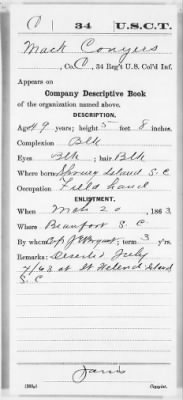 C 34 U.S.C.T.
Mack Conyers
, Co. C, 34 Reg't U.S. Col'd Inf.
Appears on
Company Descriptive Book
of the organization named above.
DESCRIPTION.
Age 49 years; height 5 feet 8 inches.
Complexion Blk
Eyes Blk; hair Blk
Where born Island S.C
Occupation Field hand
ENLISTMENT.
When Mch 20, 1863.
Where Beaufort S.C.
By whom Cap J E Bryant; term 3 y'rs.
Remarks: Deserted July
7/63 at St Helena Island
S.C
Copyist.